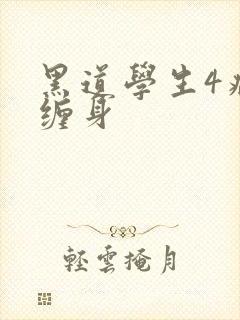 黑道學生4
缠身
輕雲掩月